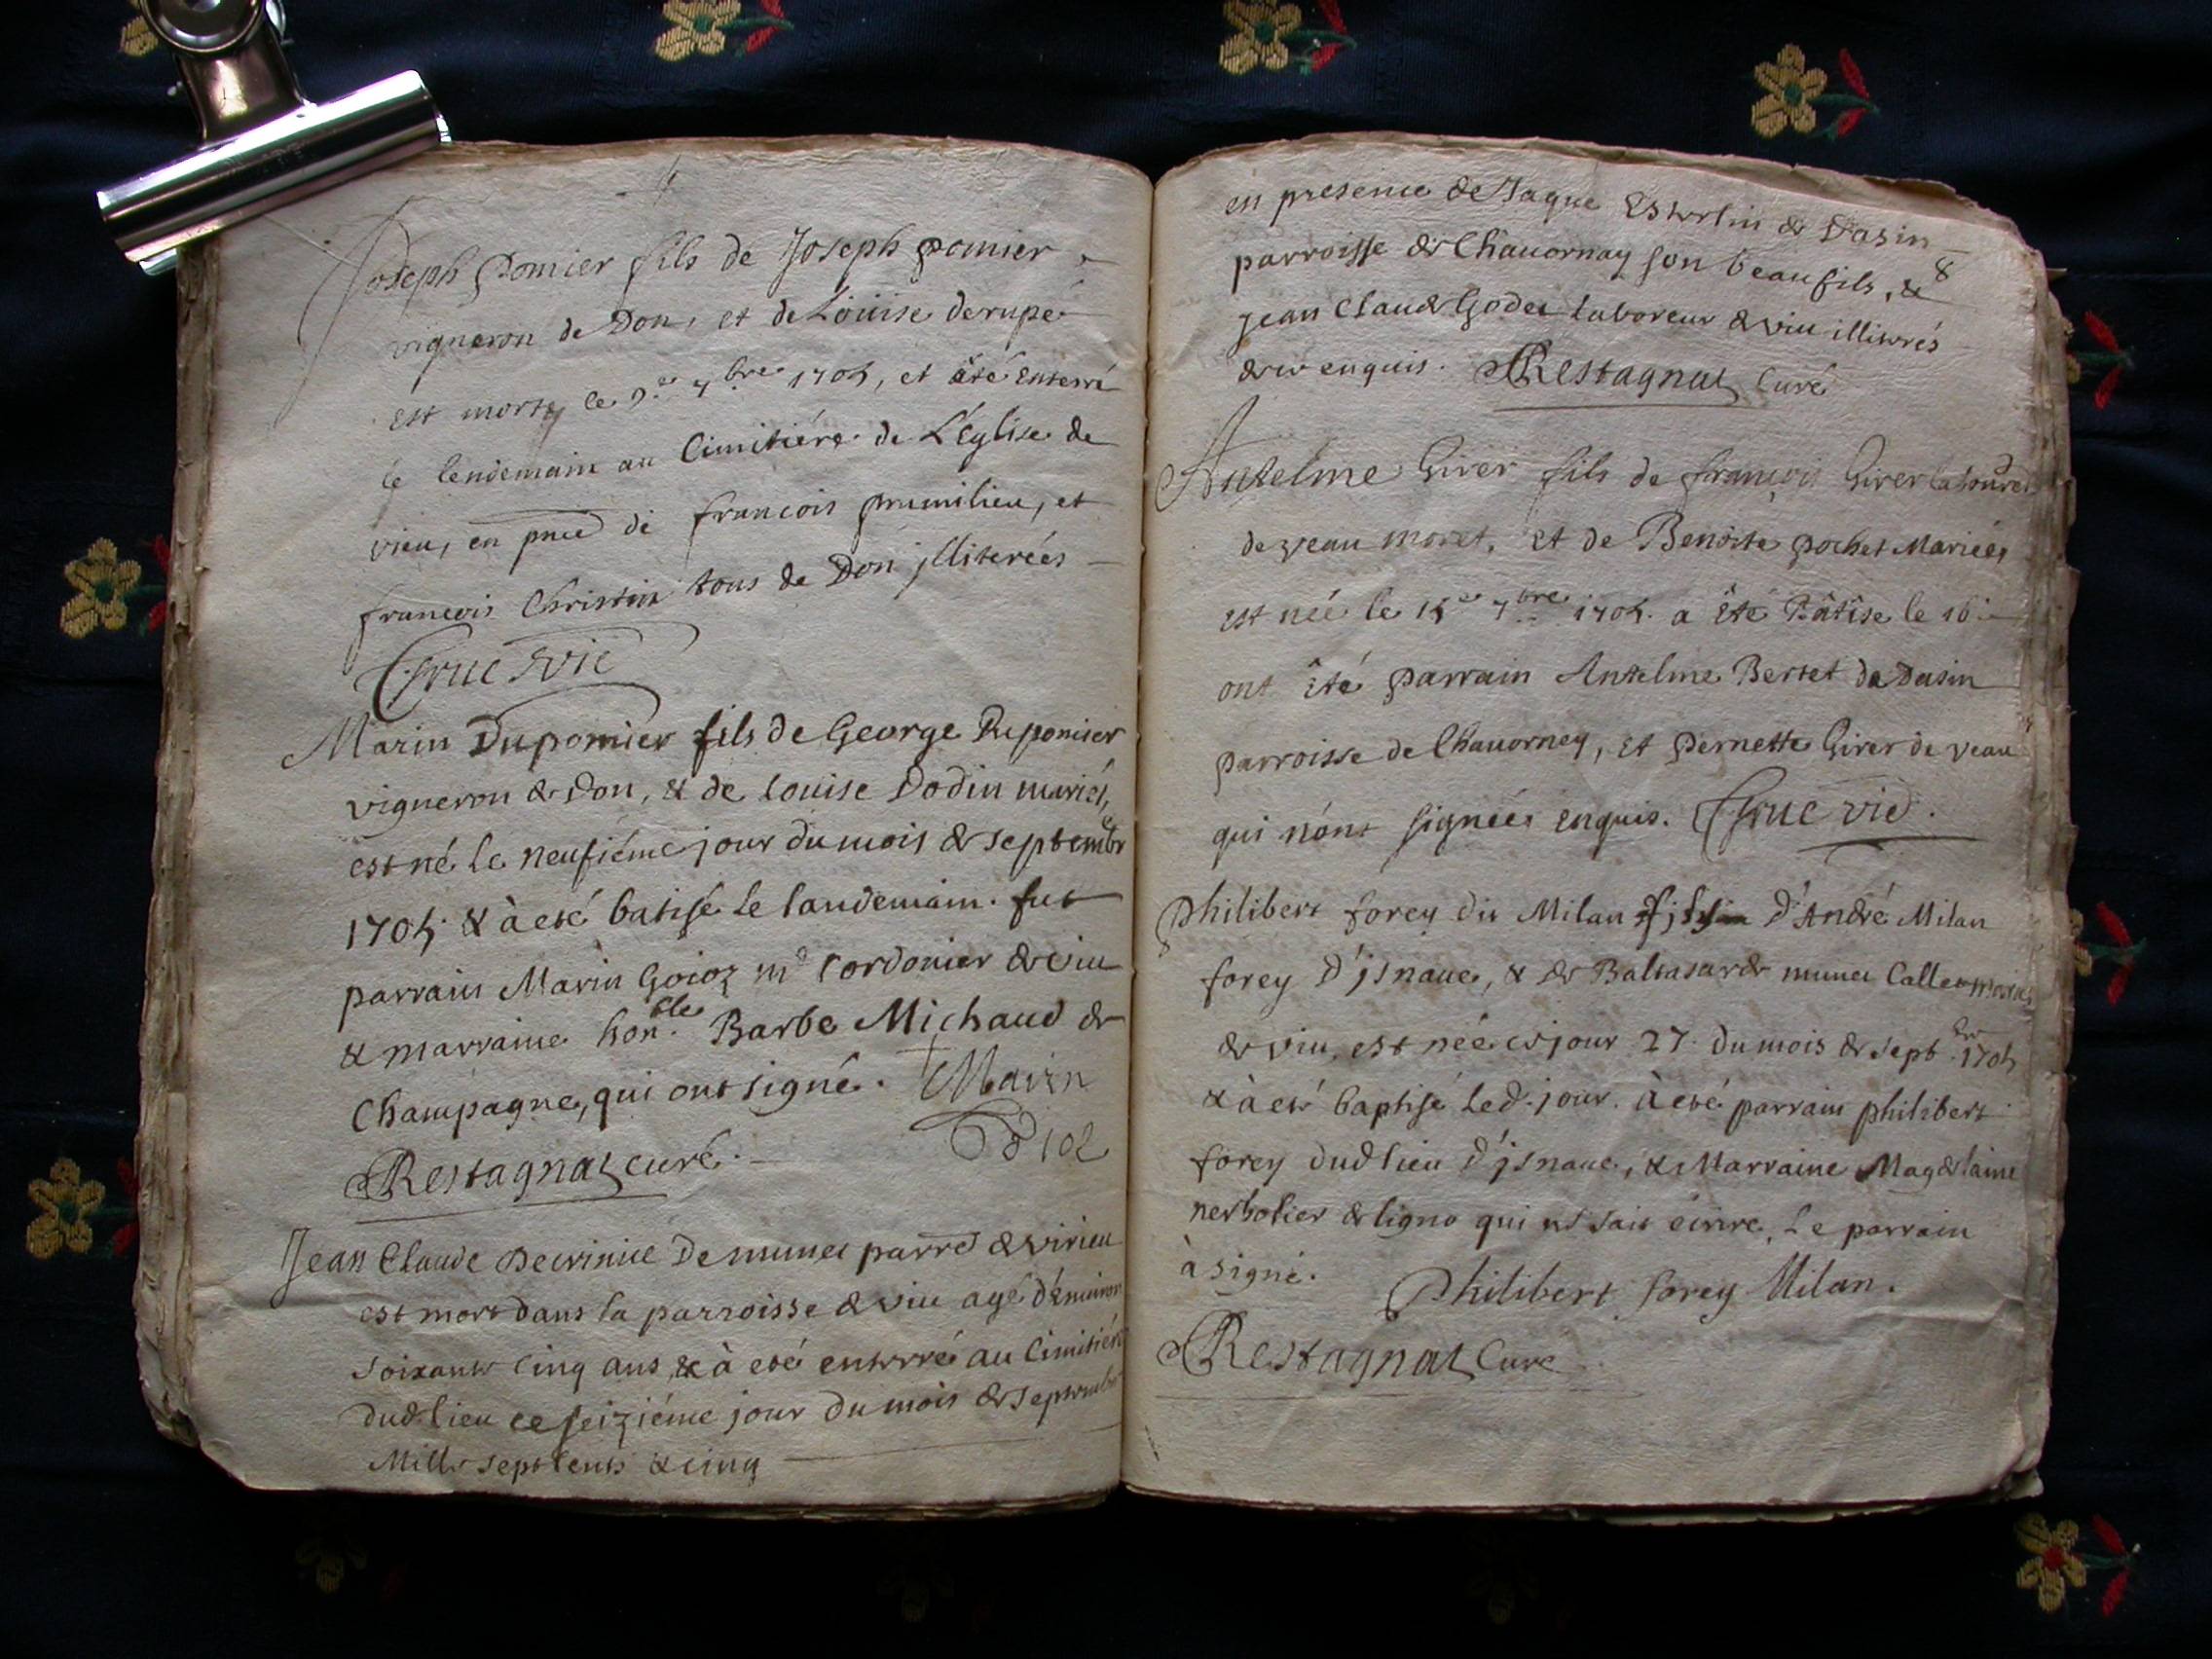 Joseph pomier fils de Joseph pomier
vigneron de Don, et de Loüise derupé
est mort le 9e 7bre 1705, et été enterré
le lendemain au Cimitiére de L'église de
vieu, en pnce de francois prumilieu, et
francois Christin tous de Don jlliterées
vic
Marin Dupomier fils de George Dupomier
vigneron de Don, & de Louise Dodin mariés,
est né le neufiéme jour du mois de septembre
1705. & à eté batisé le landemain. fut
parrain Marin Goioz md Cordonier de viu
& marraine honble Barbe Michaud de
Champagne, qui ont signé. Marin
Goioz
Restagnat curé.
Jean Claude De munet parre de virieu
est mort dans la parroisse de viu agé d'environ
soixante cinq ans, & à eté enterré au Cimitiére
dud. lieu ce seiziéme jour du mois de septembre
Mille sept cents & cinq
8
en presence de Jaque de Dasin
parroisse de Chauornay son beau fils, &
jean Claude Godet laboreur de viu illitirés
de ce enquis. Restagnat Curé
Antelme Girer fils de françois Girer laboureur
de veau moret, et de Benoite pochet Mariées
est née le 15e 7bre 1705. a été Bâtise le 16e
ont été parrain Antelme Bertet de Dasin
parroisse de Chauorney, et pernette Girer de veau
qui n'ont signées enquis. vic.
Philibert forey dit Milan fils d'André Milan
forey d'jsnaue, & de Baltasarde munet Callet mariés
de viu, est née ce jour 27. du mois de sept.bre 1705
& à eté baptisé led. jour. à eté parrain philibert
forey dud lieu d'jsnaue, & Marraine Magdelaine
nerbolier de ligno qui ne sait écrire, Le parrain
à signé. Philibert forey Milan.
Restagnat Curé